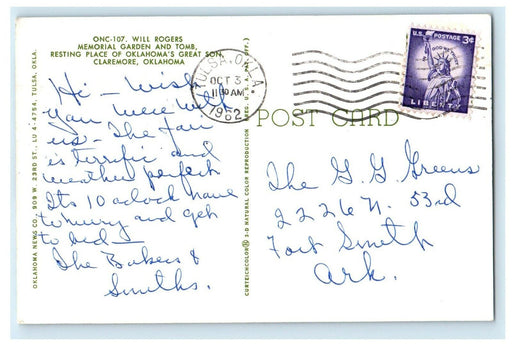 ONC-107. WILL ROGERS
MEMORIAL GARDEN AND TOMB,
RESTING PLACE OF OKLAHOMA'S GREAT SON,
CLAREMORE, OKLAHOMA
Hi - Wish
you were with
us - The fair
is terrific and
weather perfect
Its 10 oclock have
to hurry and get
to bed —
The Bakers &
Smiths.
OKLAHOMA NEWS CO. 909 W. 23RD ST., LU 4-4754, TULSA, OKLA.
CURTEICHCOLOR® 3-D NATURAL COLOR REPRODUCTION (REG. U.S. PAT. OFF.)
TULSA, OKLA.
OCT 3
11 30 AM
1962
U.S. POSTAGE 3¢
IN GOD WE TRUST
LIBERTY
POST CARD
The G. G. Greens
2226 N. 53rd
Fort Smith
Ark.